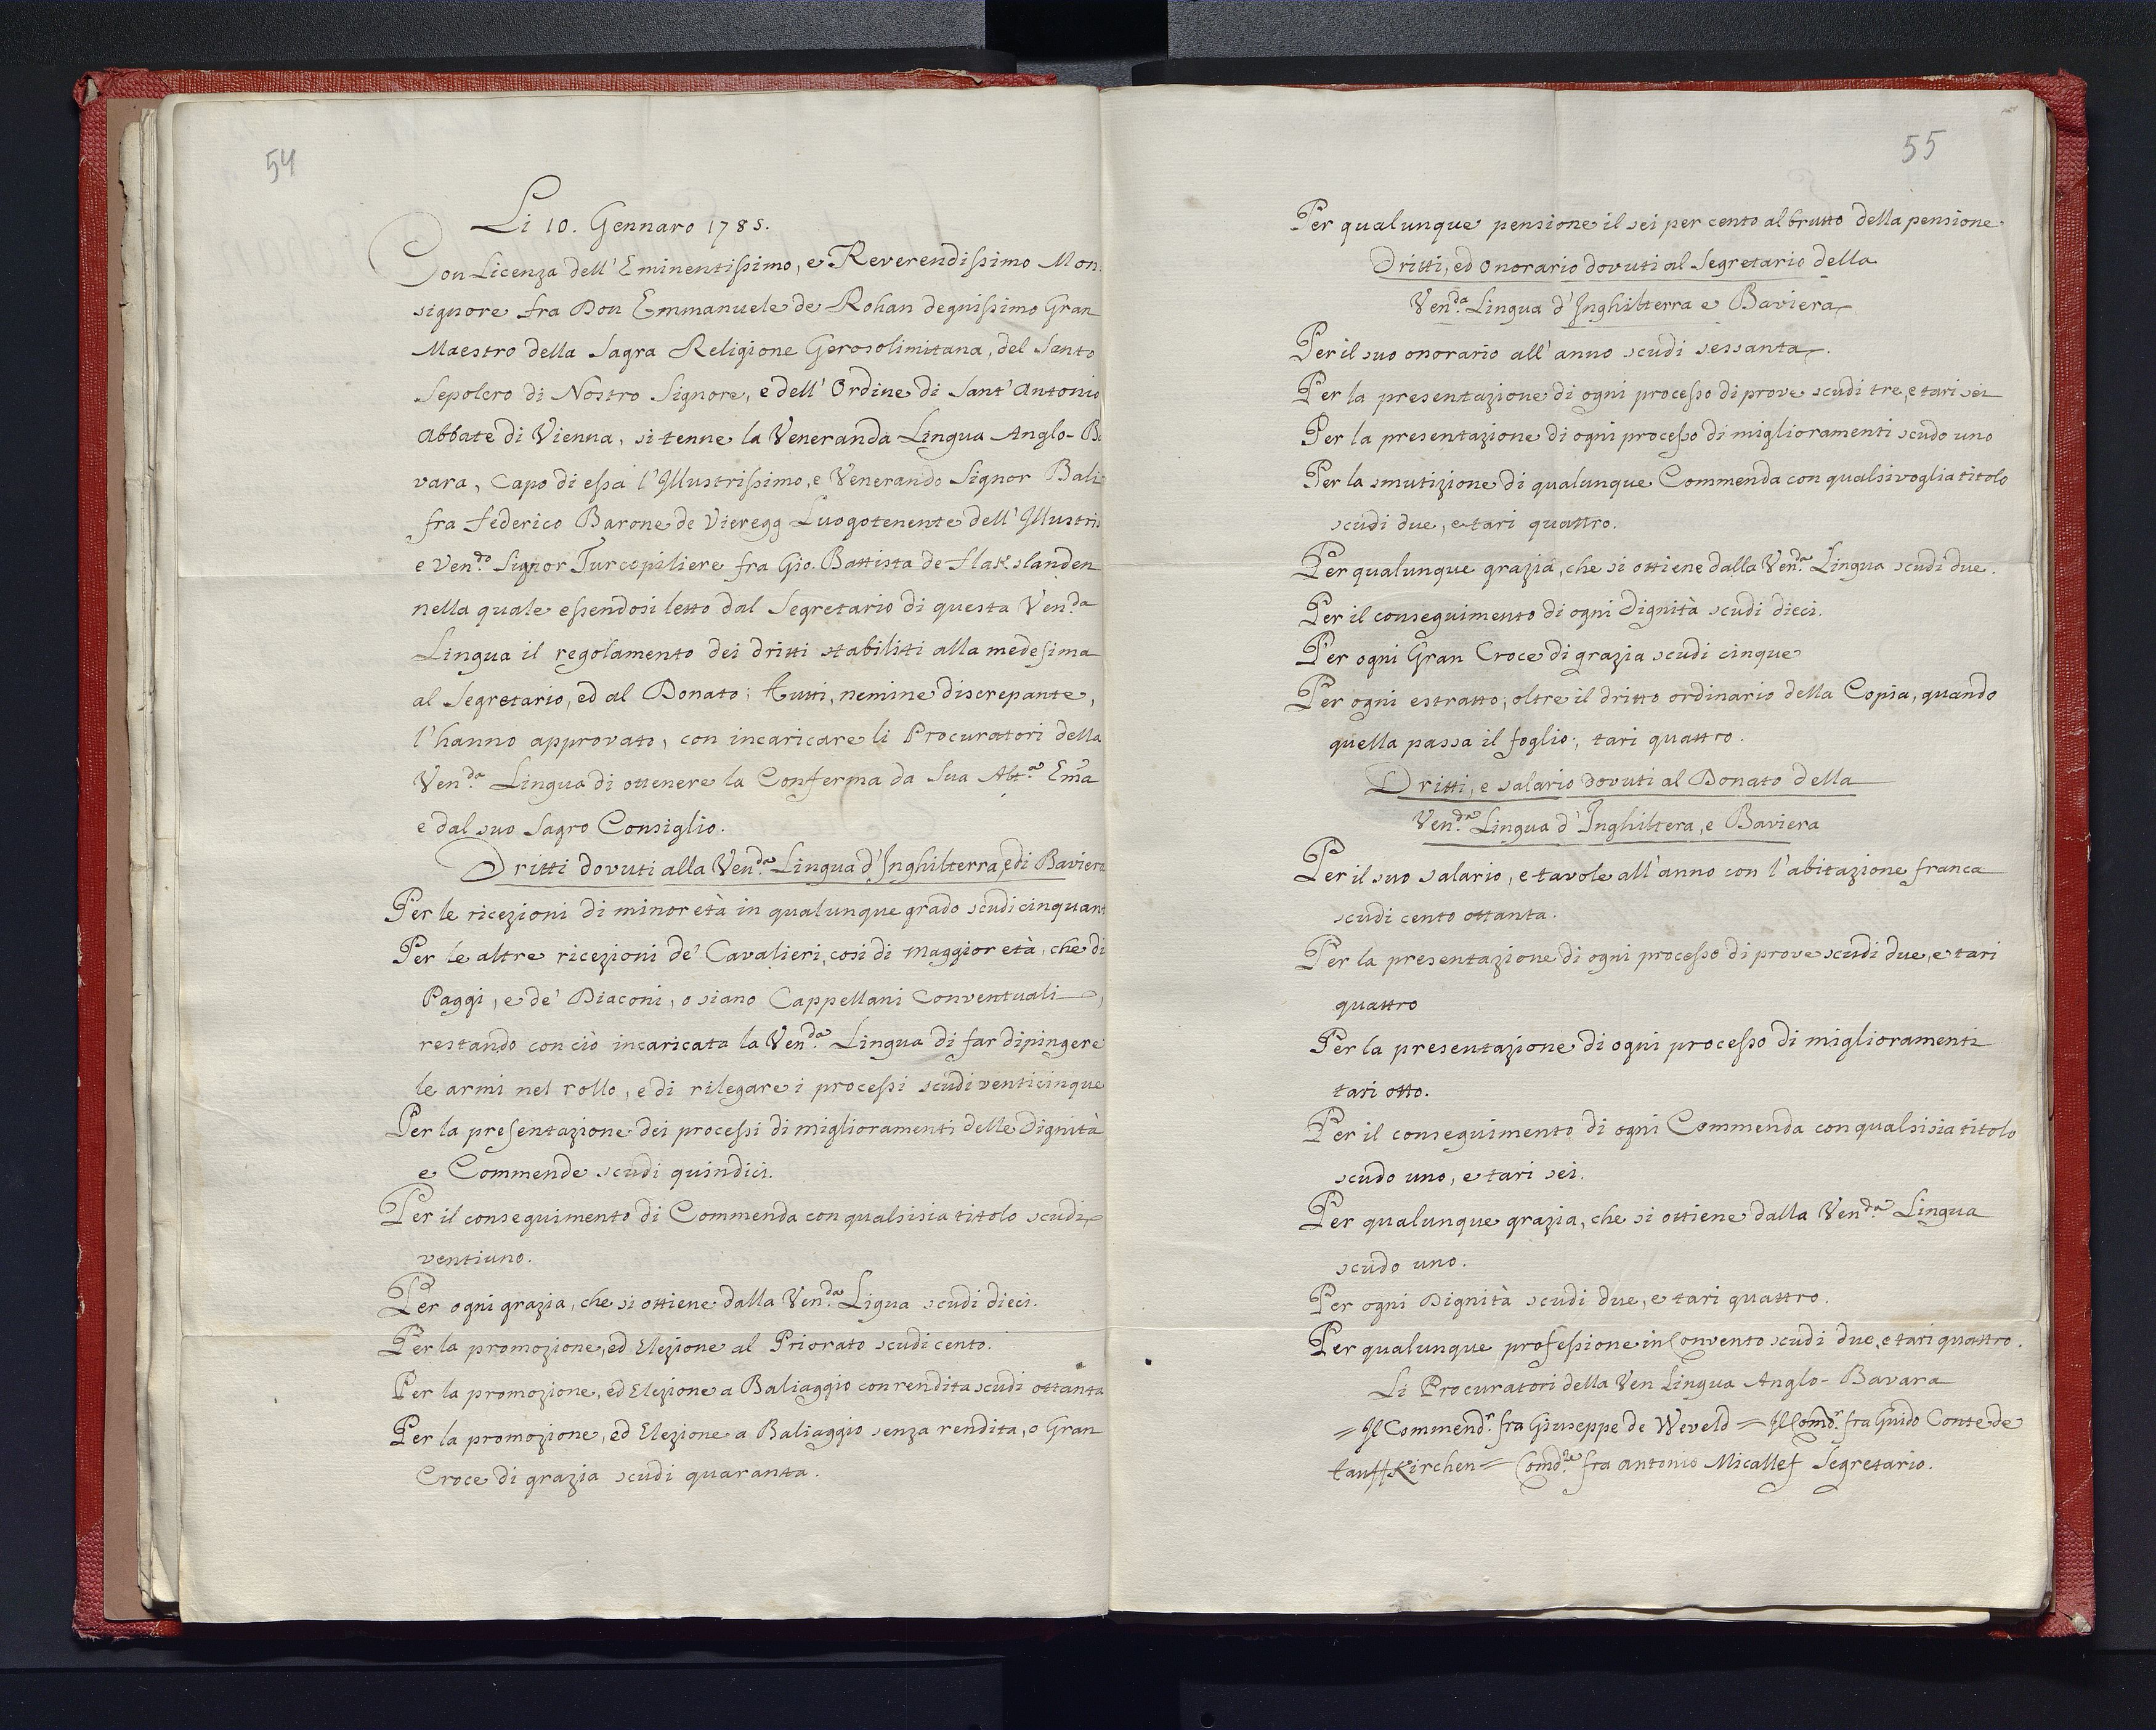 54
Li 10. Gennaro 1785.
Con Licenza dell' Eminentissimo, e Reverendissimo Mon.
signore fra Don Emmanuele de Rohan degnissimo Gran
Maestro della Sagra Religione Gerosolimitana, del Santo
Sepolcro di Nostro Signore, e dell' Ordine di Sant' Antonio
Abbate di Vienna, si tenne la Veneranda Lingua Anglo-Ba
vara, Capo di essa l'Illustrissimo, e Venerando Signor Bali
fra Federico Barone de Vieregg Luogotenente dell' Illustris
e Ven.do Signor Turcopiliere fra Gio. Battista de Flakslanden
nella quale essendosi letto dal Segretario di questa Ven.da
Lingua il regolamento dei dritti stabiliti alla medesima
al Segretario, ed al Donato; tutti, nemine discrepante,
l'hanno approvato, con incaricare li Procuratori della
Ven.da Lingua di ottenere la Conferma da Sua Alt.a Em̃a
e dal suo Sagro Consiglio.
Dritti dovuti alla Ven.da Lingua d'Inghilterra, e di Baviera
Per le ricezioni di minor età in qualunque grado scudi cinquant
Per le altre ricezioni de' Cavalieri, cosi di maggior età, che di
Paggi, e de' Diaconi, o siano Cappellani Conventuali,
restando con ciò incaricata la Ven.da Lingua di far dipingere
le armi nel rollo, e di rilegare i processi scudi venticinque
Per la presentazione dei processi di miglioramenti delle Dignità
e Commende scudi quindici.
Per il conseguimento di Commenda con qualsisia titolo scudi
ventiuno.
Per ogni grazia, che si ottiene dalla Ven.da Ligua scudi dieci.
Per la promozione, ed Elezione al Priorato scudi cento.
Per la promozione, ed Elezione a Baliaggio con rendita scudi ottanta
Per la promozione, ed Elezione a Baliaggio senza rendita, o Gran
Croce di grazia scudi quaranta.
55
Per qualunque pensione il sei per cento al brutto della pensione
Dritti, ed onorario dovuti al Segretario della
Ven.da Lingua d'Inghilterra e Baviera
Per il suo onorario all' anno scudi sessanta.
Per la presentazione di ogni processo di prove scudi tre, e tari sei
Per la presentazione di ogni processo di miglioramenti scudo uno
Per la smutizione di qualunque Commenda con qualsivoglia titolo
scudi due, e tari quattro.
Per qualunque grazia, che si ottiene dalla Ven.da Lingua scudi due.
Per il conseguimento di ogni Dignità scudi dieci.
Per ogni Gran Croce di grazia scudi cinque
Per ogni estratto, oltre il dritto ordinario della Copia, quando
quella passa il foglio, tari quattro.
Dritti, e salario dovuti al Donato della
Ven.da Lingua d'Inghiltera, e Baviera
Per il suo salario, e tavole all'anno con l'abitazione franca
scudi cento ottanta.
Per la presentazione di ogni processo di prove scudi due, e tari
quattro
Per la presentazione di ogni processo di miglioramenti
tari otto.
Per il conseguimento di ogni Commenda con qualsisia titolo
scudo uno, e tari sei.
Per qualunque grazia, che si ottiene dalla Ven.da Lingua
scudo uno.
Per ogni Dignità scudi due, e tari quattro.
Per qualunque professione in Convento scudi due, e tari quattro.
Li Procuratori della Ven Lingua Anglo-Bavara
= Il Commend.r fra Giuseppe de Weveld = Il Com̃d.r fra Guido Conte de
tauffKirchen = Com̃d.re fra Antonio Micallef Segretario.